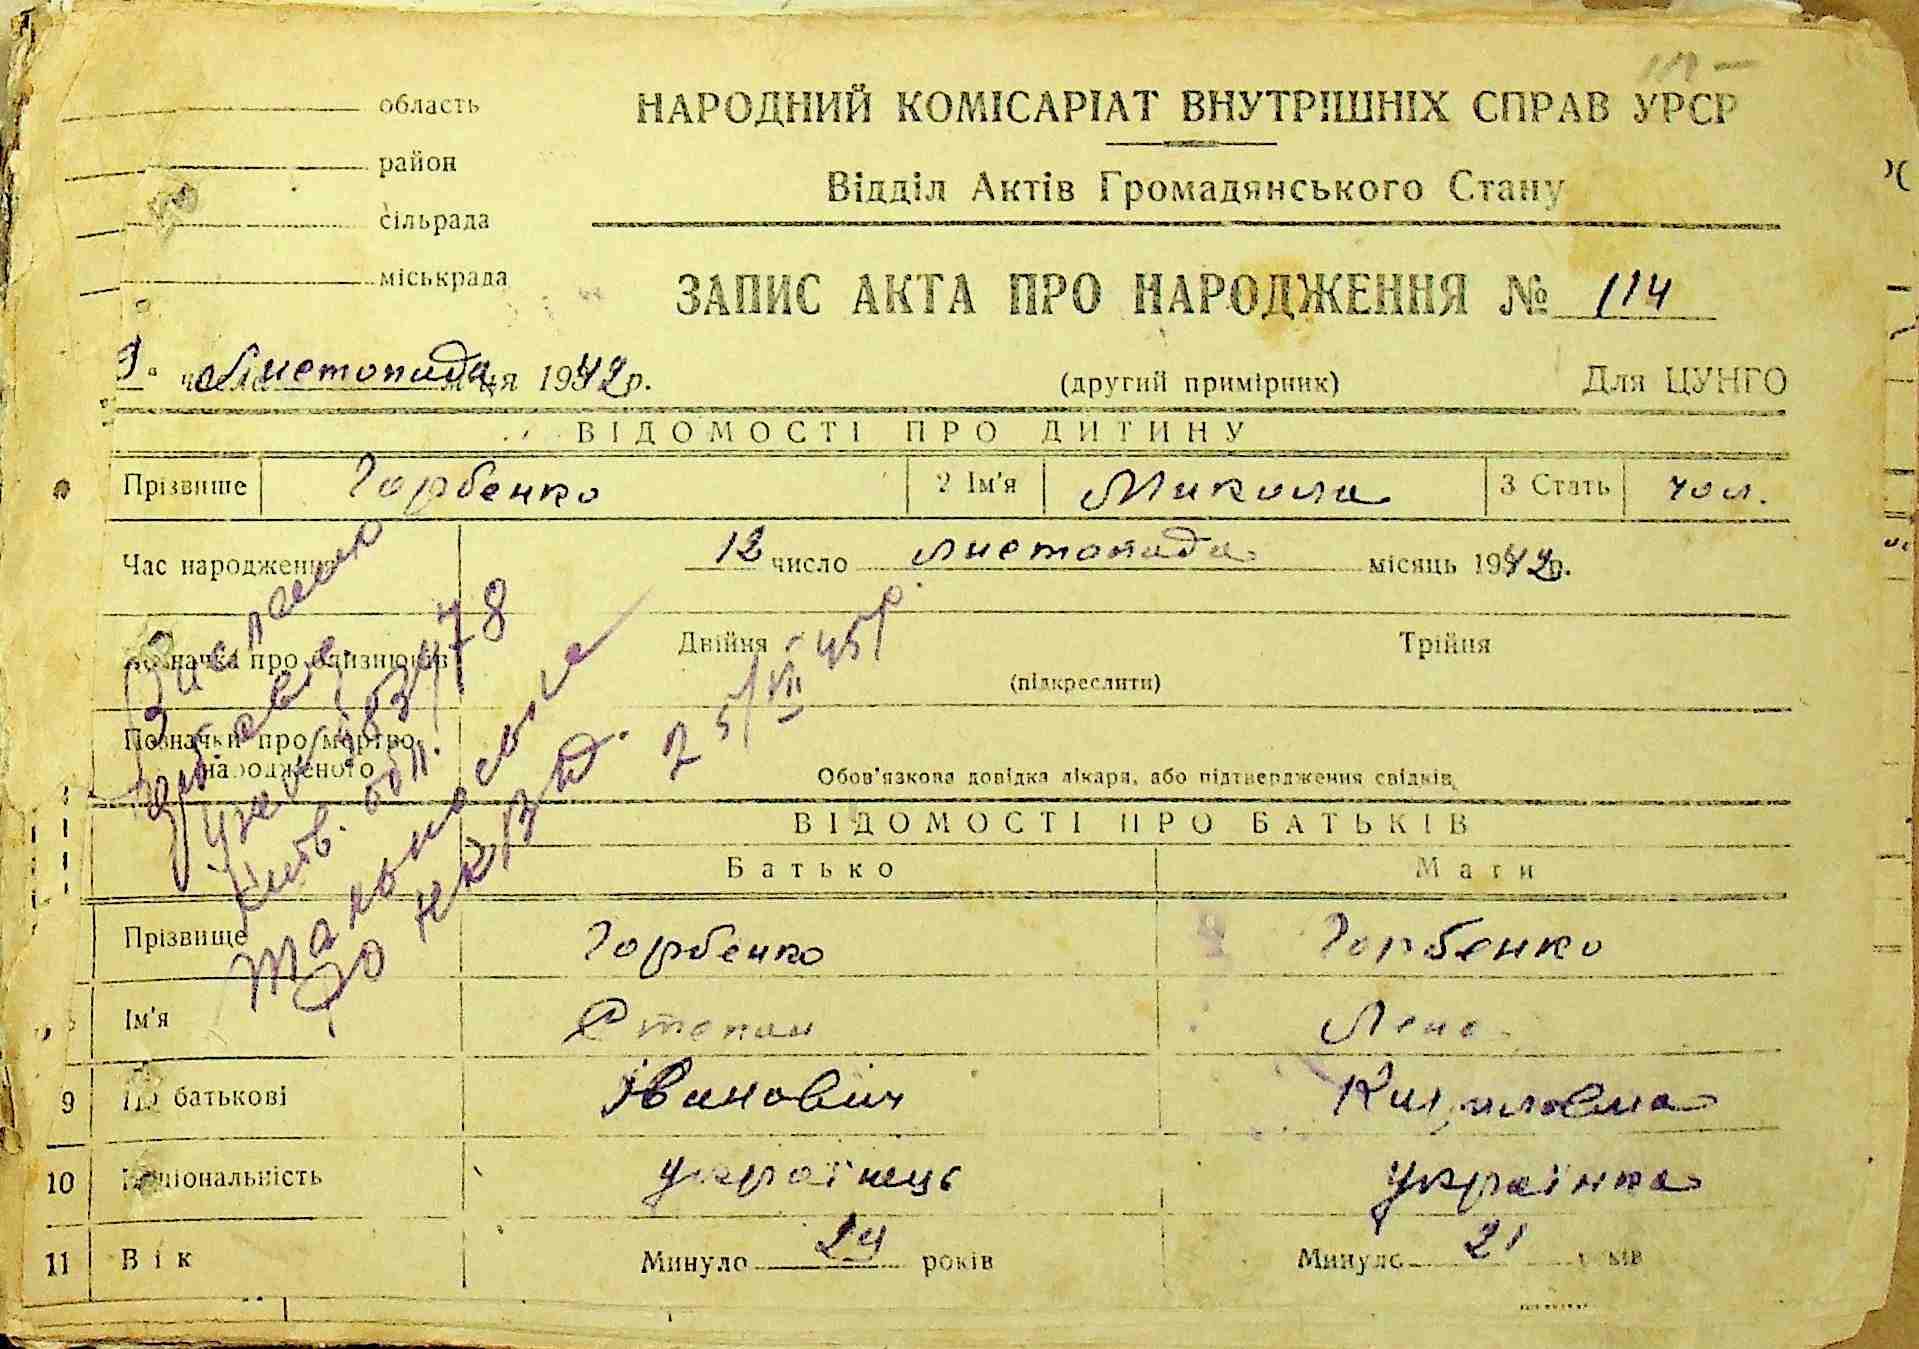 область
район
сільрада
міськрада
НАРОДНИЙ КОМІСАРІАТ ВНУТРІШНІХ СПРАВ УРСР
Відділ Актів Громадянського Стану
ЗАПИС АКТА ПРО НАРОДЖЕННЯ № 114
листопада 1942 р.
(другий примірник) Для ЦУНГО
ВІДОМОСТІ ПРО ДИТИНУ
Прізвише Горбенко 2 Ім'я Микола 3 Стать чол.
Час народження 12 число листопада місяць 1942 р.
Позначка про близнюків Двійня Трійня
(підкреслити)
Позначки про мертво-
народженого
Обов'язкова довідка лікаря, або підтвердження свідків
25/VII 45р.
ВІДОМОСТІ ПРО БАТЬКІВ
Батько Мати
Прізвище Горбенко Горбенко
Ім'я Степан Лена
9 По батькові Іванович Кириловна
10 Національність українець українка
11 Вік Минуло 24 років Минуло 21 років